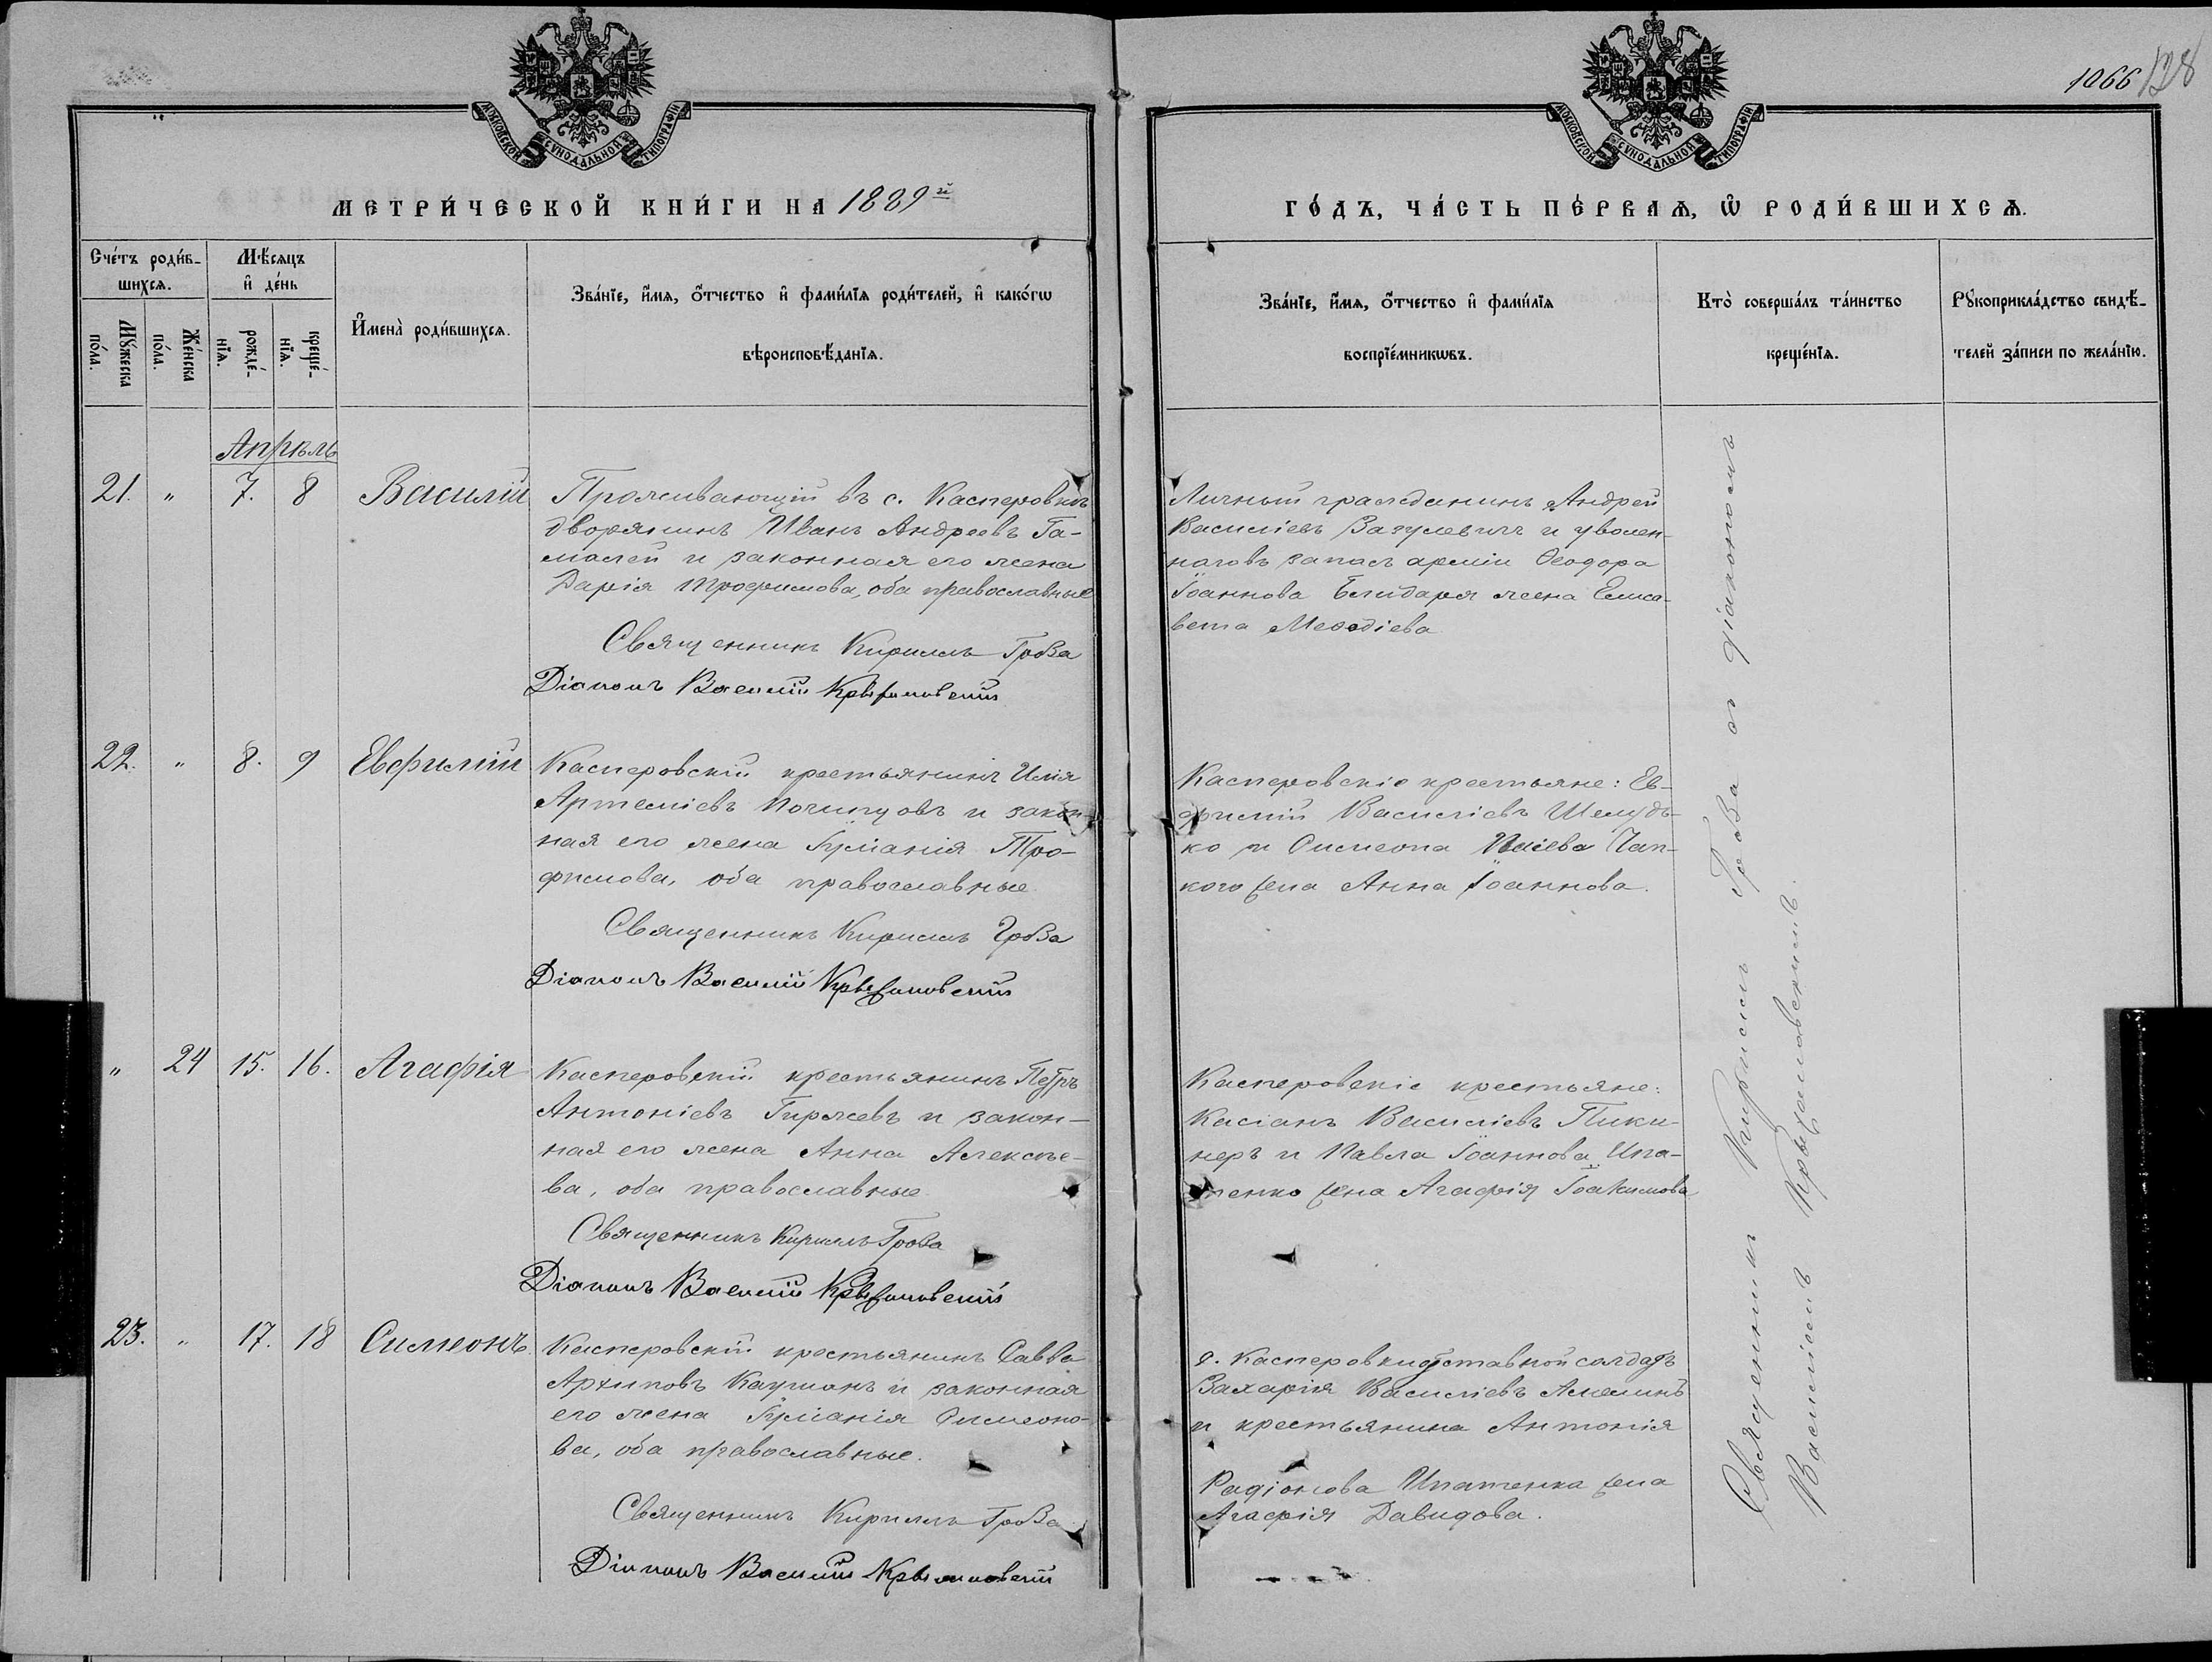 1066 128
МОСКОВСКОЙ СѴНОДАЛЬНОЙ ТИПОГРАФІИ
МОСКОВСКОЙ СѴНОДАЛЬНОЙ ТИПОГРАФІИ
МЕТРИ́ЧЕСКОЙ КНИ́ГИ НА 1889й
ГО́ДЪ, ЧА́СТЬ ПЕ́РВАѦ, Ѡ҆ РОДИ́ВШИХСѦ.
Сче́тъ роди́в-
шихсѧ.
Мꙋ́жеска
по́ла.
Же́нска
по́ла.
Мѣ́сѧцъ
и҆ де́нь
рожде́-
нїѧ.
креще́-
нїѧ.
И҆мена̀ роди́вшихсѧ.
Зва́нїе, и҆́мѧ, ѻ҆́тчество и҆ фамѝлїѧ роди́телей, и҆ како́гѡ
вѣроисповѣ́данїѧ.
Зва́нїе, и҆́мѧ, ѻ҆́тчество и҆ фами́лїѧ
воспрїе́мникѡвъ.
Кто̀ соверша́лъ та́инство
креще́нїѧ.
Рꙋкоприкла́дство свидѣ́-
телей за́писи по жела́нїю.
Апрѣль
21. " 7. 8 Василій
Проживающій въ с. Касперовкѣ
дворянинъ Иванъ Андреевъ Га-
малей и законная его жена
Дарія Трофимова, оба православные
Священникъ Кириллъ Гроза
Діаконъ Василій Крыжановскій
Личный гражданинъ Андрей
Василіевъ Зазулевичъ и уволен-
наго въ запасъ арміи Ѳеодора
Іоаннова жена Елиса-
вета Меѳодіева
22. " 8. 9 Евфимій
Касперовскій крестьянинъ Илія
Артеміевъ и закон-
ная его жена Іуліанія Тро-
фимова, оба православные
Священникъ Кириллъ Гроза
Діаконъ Василій Крыжановскій
Касперовскіе крестьяне: Ев-
фимій Василіевъ Шелудь-
ко и Симеона Чап-
кого жена Анна Іоаннова.
" 24 15. 16. Агафія
Касперовскій крестьянинъ Петръ
Антоніевъ Гиржевъ и закон-
ная его жена Анна Алексѣе-
ва, оба православные
Священникъ Кириллъ Гроза
Діаконъ Василій Крыжановскій
Касперовскіе крестьяне:
Касіанъ Василіевъ Пики-
неръ и Павла Іоаннова Ипа-
тенко жена Агафія Іоакимова
23. " 17. 18 Симеонъ.
Касперовскій крестьянинъ Савва
Архиповъ Кауманъ и законная
его жена Іуліанія Симеоно-
ва, оба православные.
Священникъ Кириллъ Гроза
Діаконъ Василій Крыжановскій
с. Касперовки отставной солдатъ
Захарія Василіевъ Амелинъ
и крестьянина Антонія
Радіонова Ипатенка жена
Агафія Давидова.
Священникъ Кириллъ Гроза съ діакономъ
Василіемъ Крыжановскимъ.